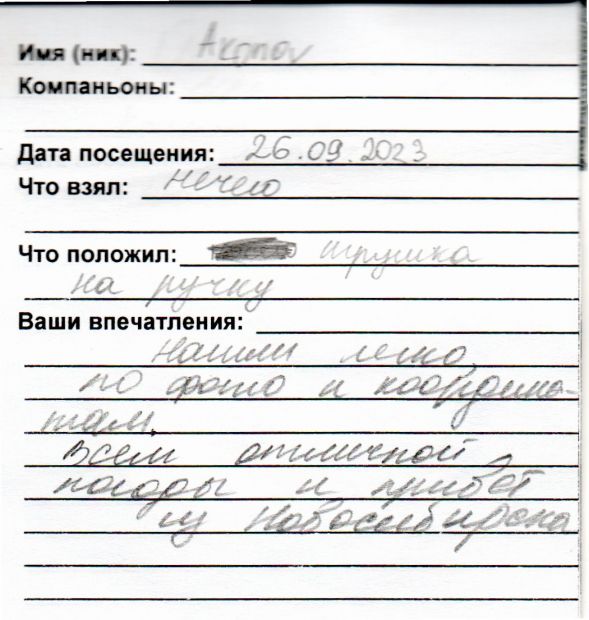 Имя (ник): Akmov
Компаньоны:
Дата посещения: 26.09.2023
Что взял: нечего
Что положил: игрушка
на ручку
Ваши впечатления:
Нашли легко
по фото и координа-
там.
Всем отличной
погоды и привет
из Новосибирска